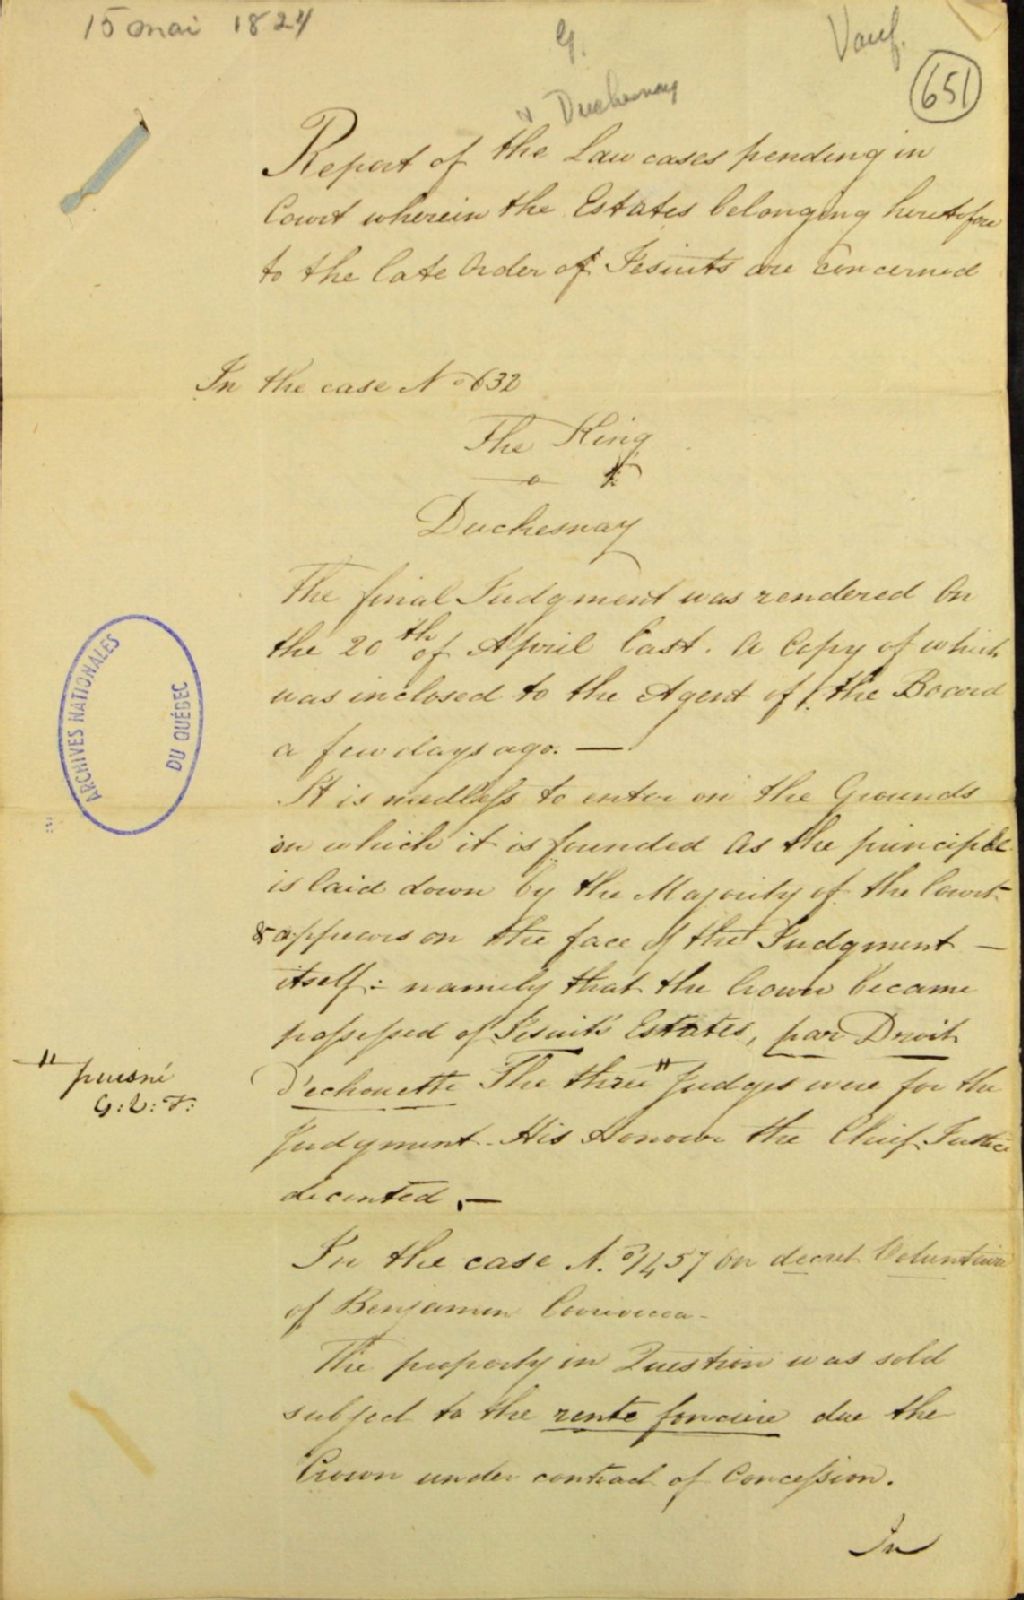 15 mai 1824
G.
Vauf.
651
" Duchesnay
Report of the Law cases pending in
Court wherein the Estates belonging heretofore
to the late Order of Jesuits are concerned
In the case No 632
The King
Duchesnay
The final Judgment was rendered on
the 20th of April last. A Copy of which
was inclosed to the Agent of the Board
a few days ago. —
It is needless to enter on the Grounds
on which it is founded as the principle
is laid down by the Majority of the Court
& appears on the face of the Judgment —
itself: namely that the Crown became
possessed of Jesuits Estates, par Droit
d'echouette The three " Judges were for the
" puisné
G: L: F:
Judgment. His Honour the Chief Justice
decented. —
In the case No. 1457 on decret Voluntaire
of Benjamin
The property in Question was sold
subject to the rente fonciere due the
Crown under contract of Concession.
In
ARCHIVES NATIONALES
DU QUÉBEC